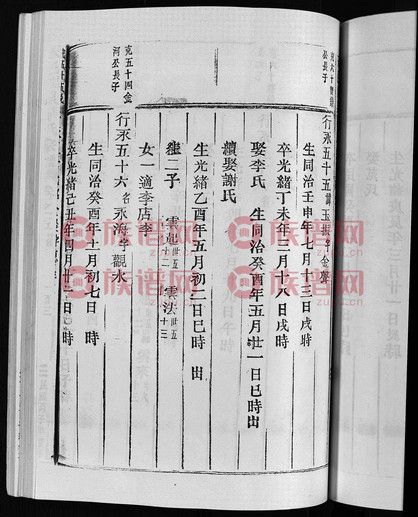 公長子
行永五十五諱玉振字金聲
生同治壬申年七月十三日戌時
卒光緒丁未年二月十六日戌時
娶李氏 生同治癸酉年五月廿一日巳時出
續娶謝氏
生光緒乙酉年五月初二日巳時出
生二子 雲起世五十二 雲法世五十三
女一適李店李
克五十四金
河公長子
行永五十六名永海字觀水
生同治癸酉年十一月初七日 時
卒光緒己丑年四月廿三日巳時
族譜网
族譜网